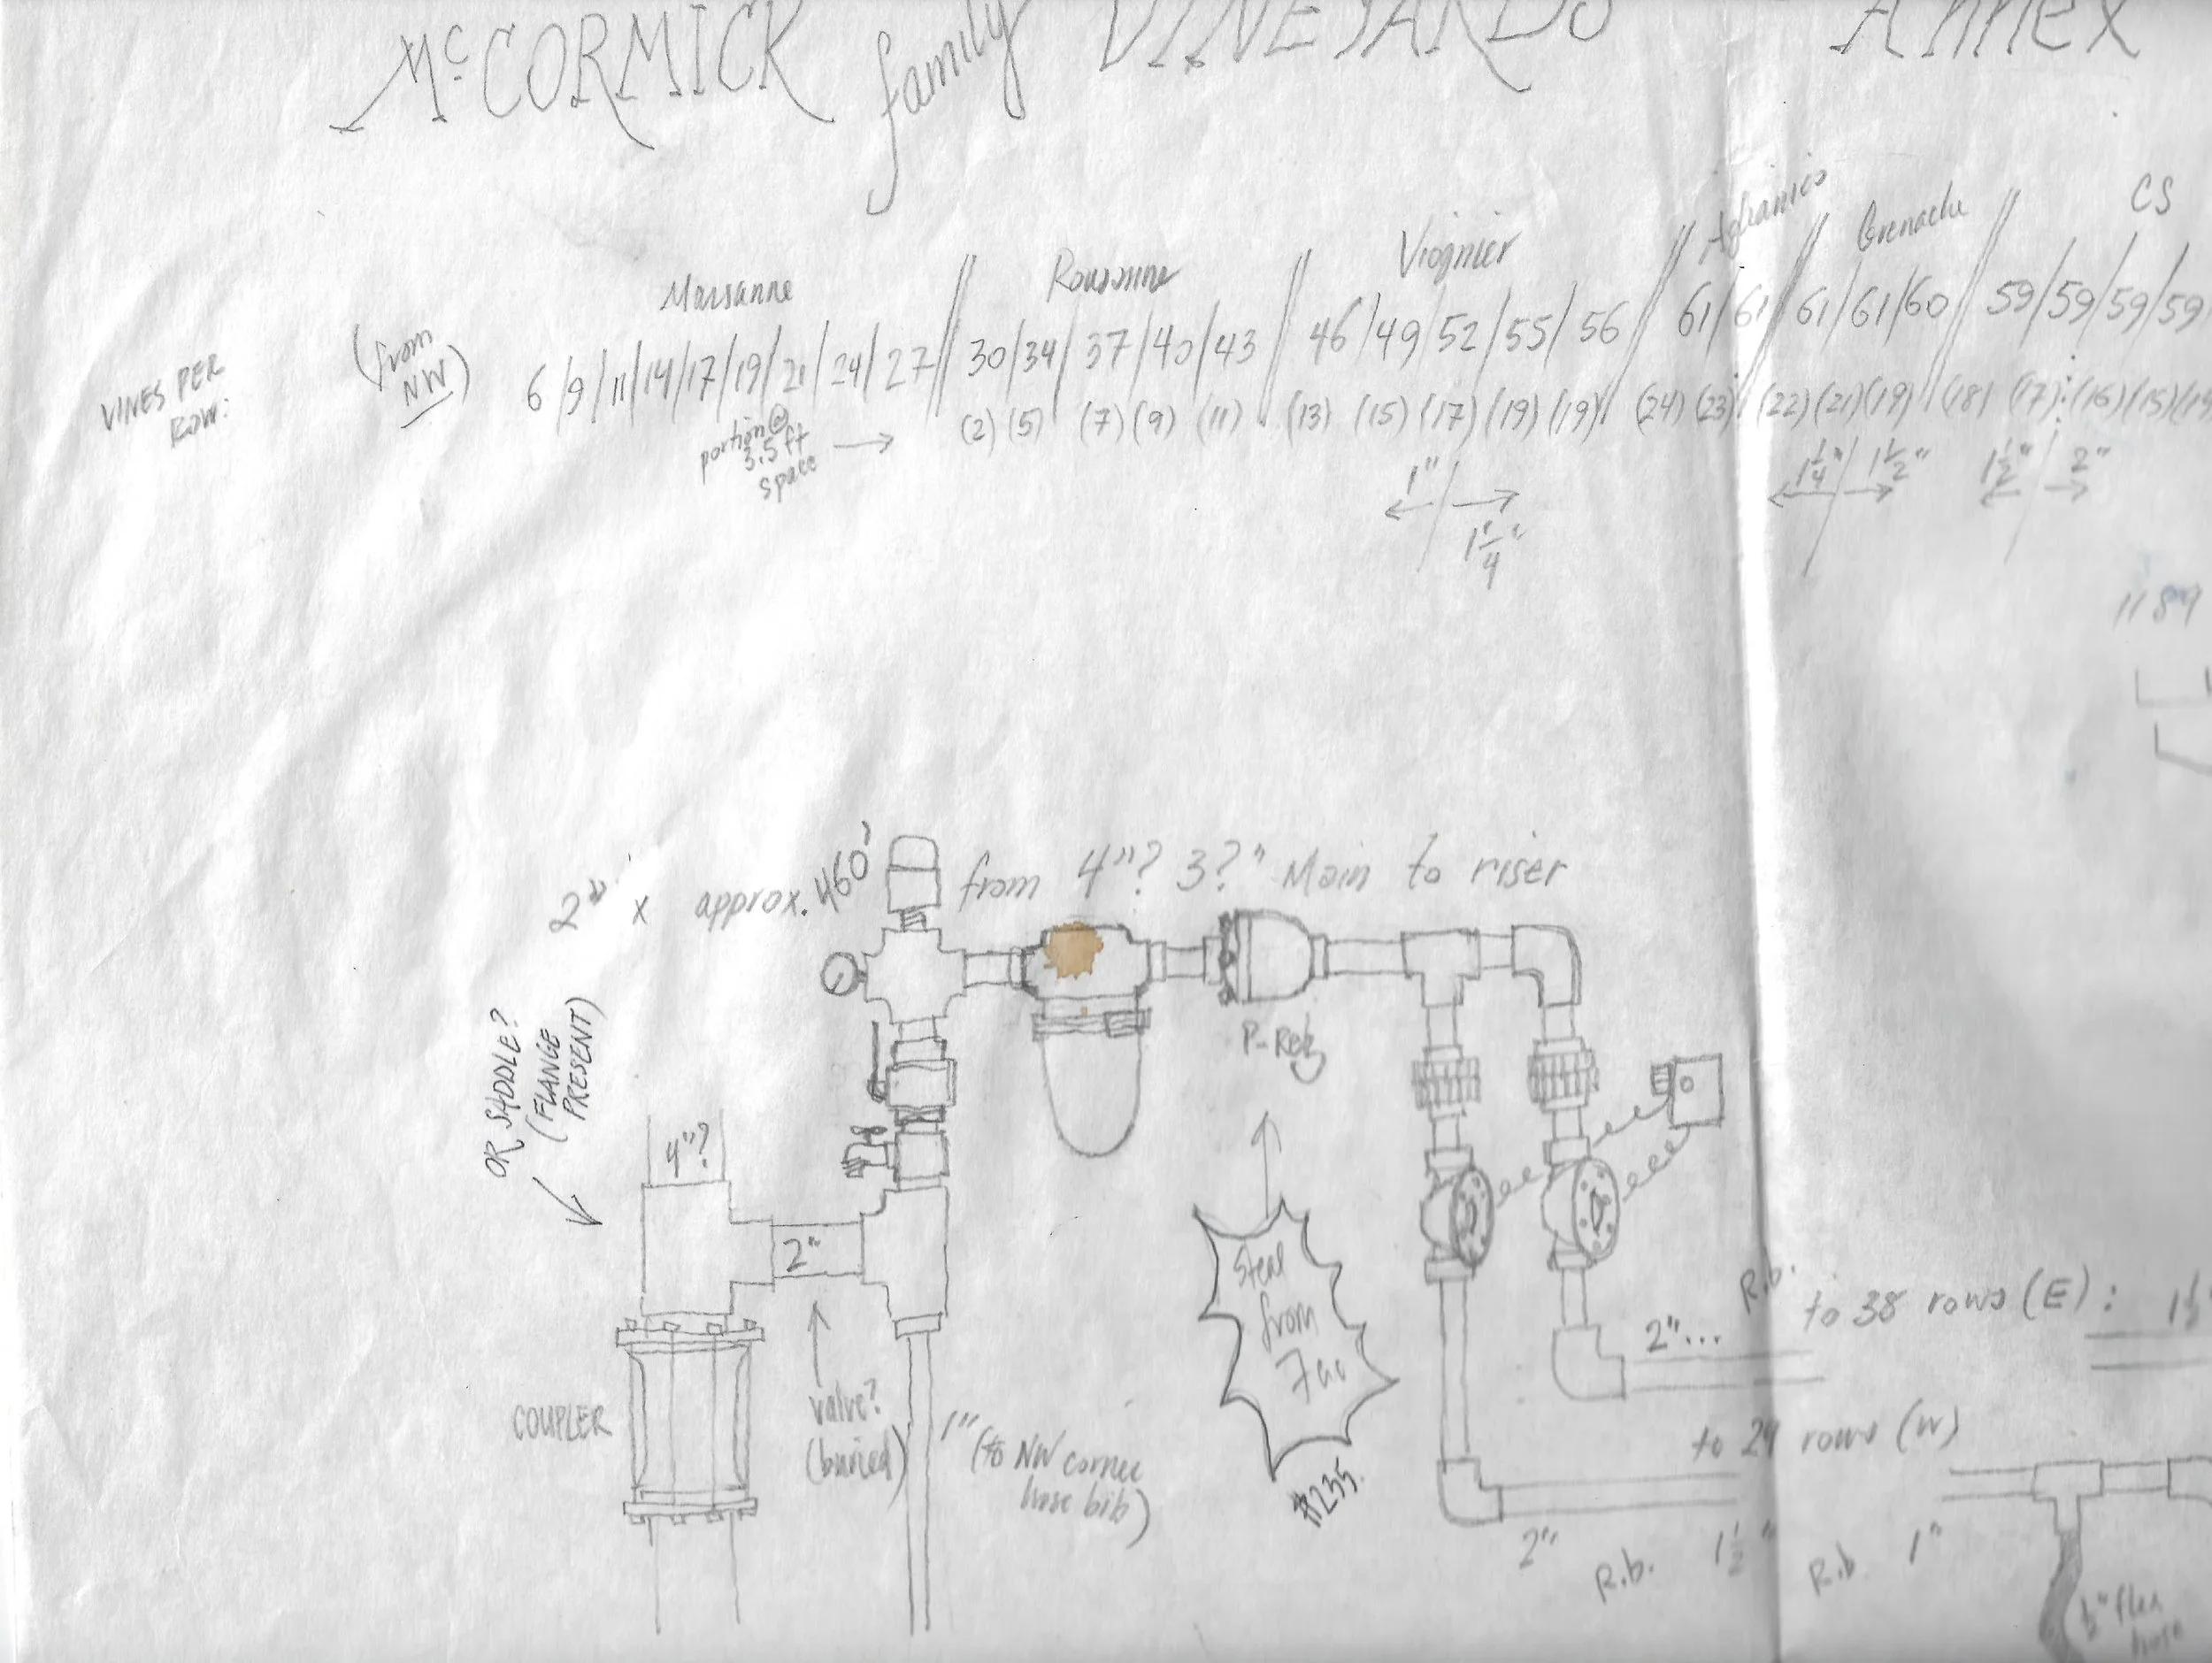 McCORMICK family VINEYARDS Annex
Marsanne Roussanne Viognier Aglianico Grenache CS
VINES PER ROW:
(from NW)
6/9/11/14/17/19/21/24/27//30/34/37/40/43//46/49/52/55/56//61/61//61/61/60//59/59/59/59
portion @ 3.5 ft space →
(2) (5) (7) (9) (11) (13) (15) (17) (19) (19) (24) (23) (22) (21) (19) (18) (17) (16) (15)
1" / 1 1/4"
1 1/4" / 1 1/2"
1 1/2" / 2"
2" x approx. 460' from 4"? 3?" Main to riser
OR SADDLE?
(FLANGE
PRESENT)
P-Reg
4"?
2"
Steal
from
#235.
COUPLER
valve?
(buried)
1" (to NW corner
hose bib)
2"... R.b. to 38 rows (E):
to 24 rows (W)
2" R.b. 1 1/2" R.b. 1"
1/2" flex
hose